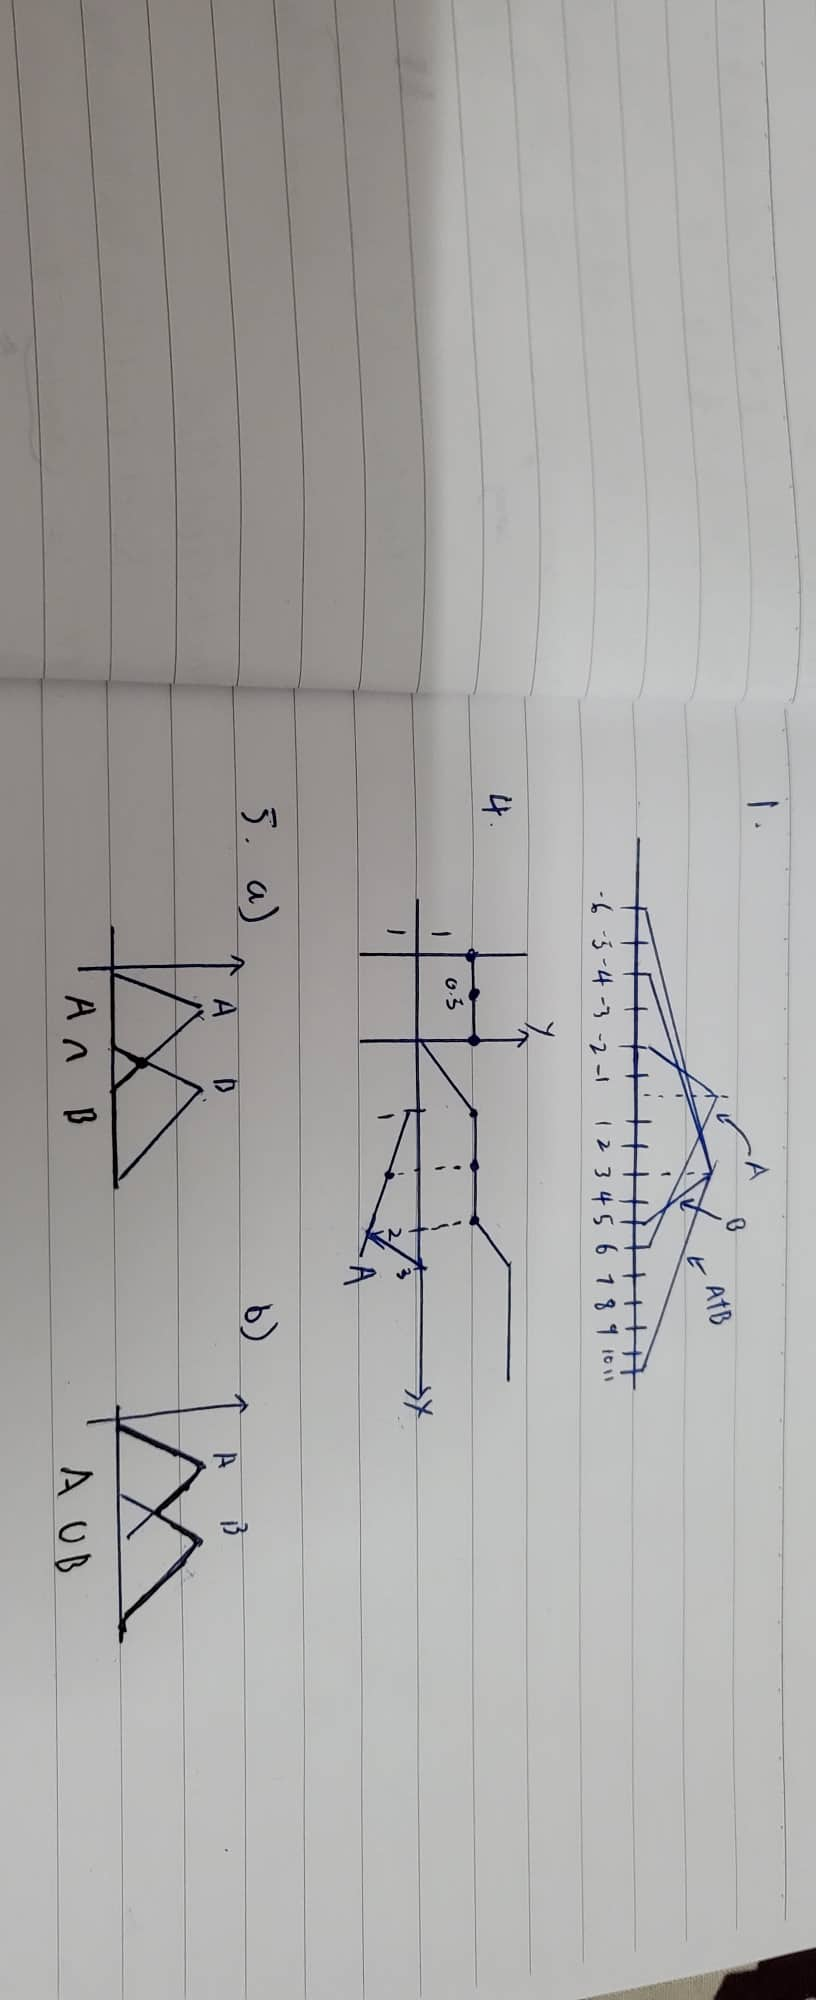 1.
A
B
A+B
-6 -5 -4 -3 -2 -1 1 2 3 4 5 6 7 8 9 10 11
4.
Y
1
1
0.5
1
2
3
X
A
5. a)
A B
A ∩ B
b)
A B
A ∪ B